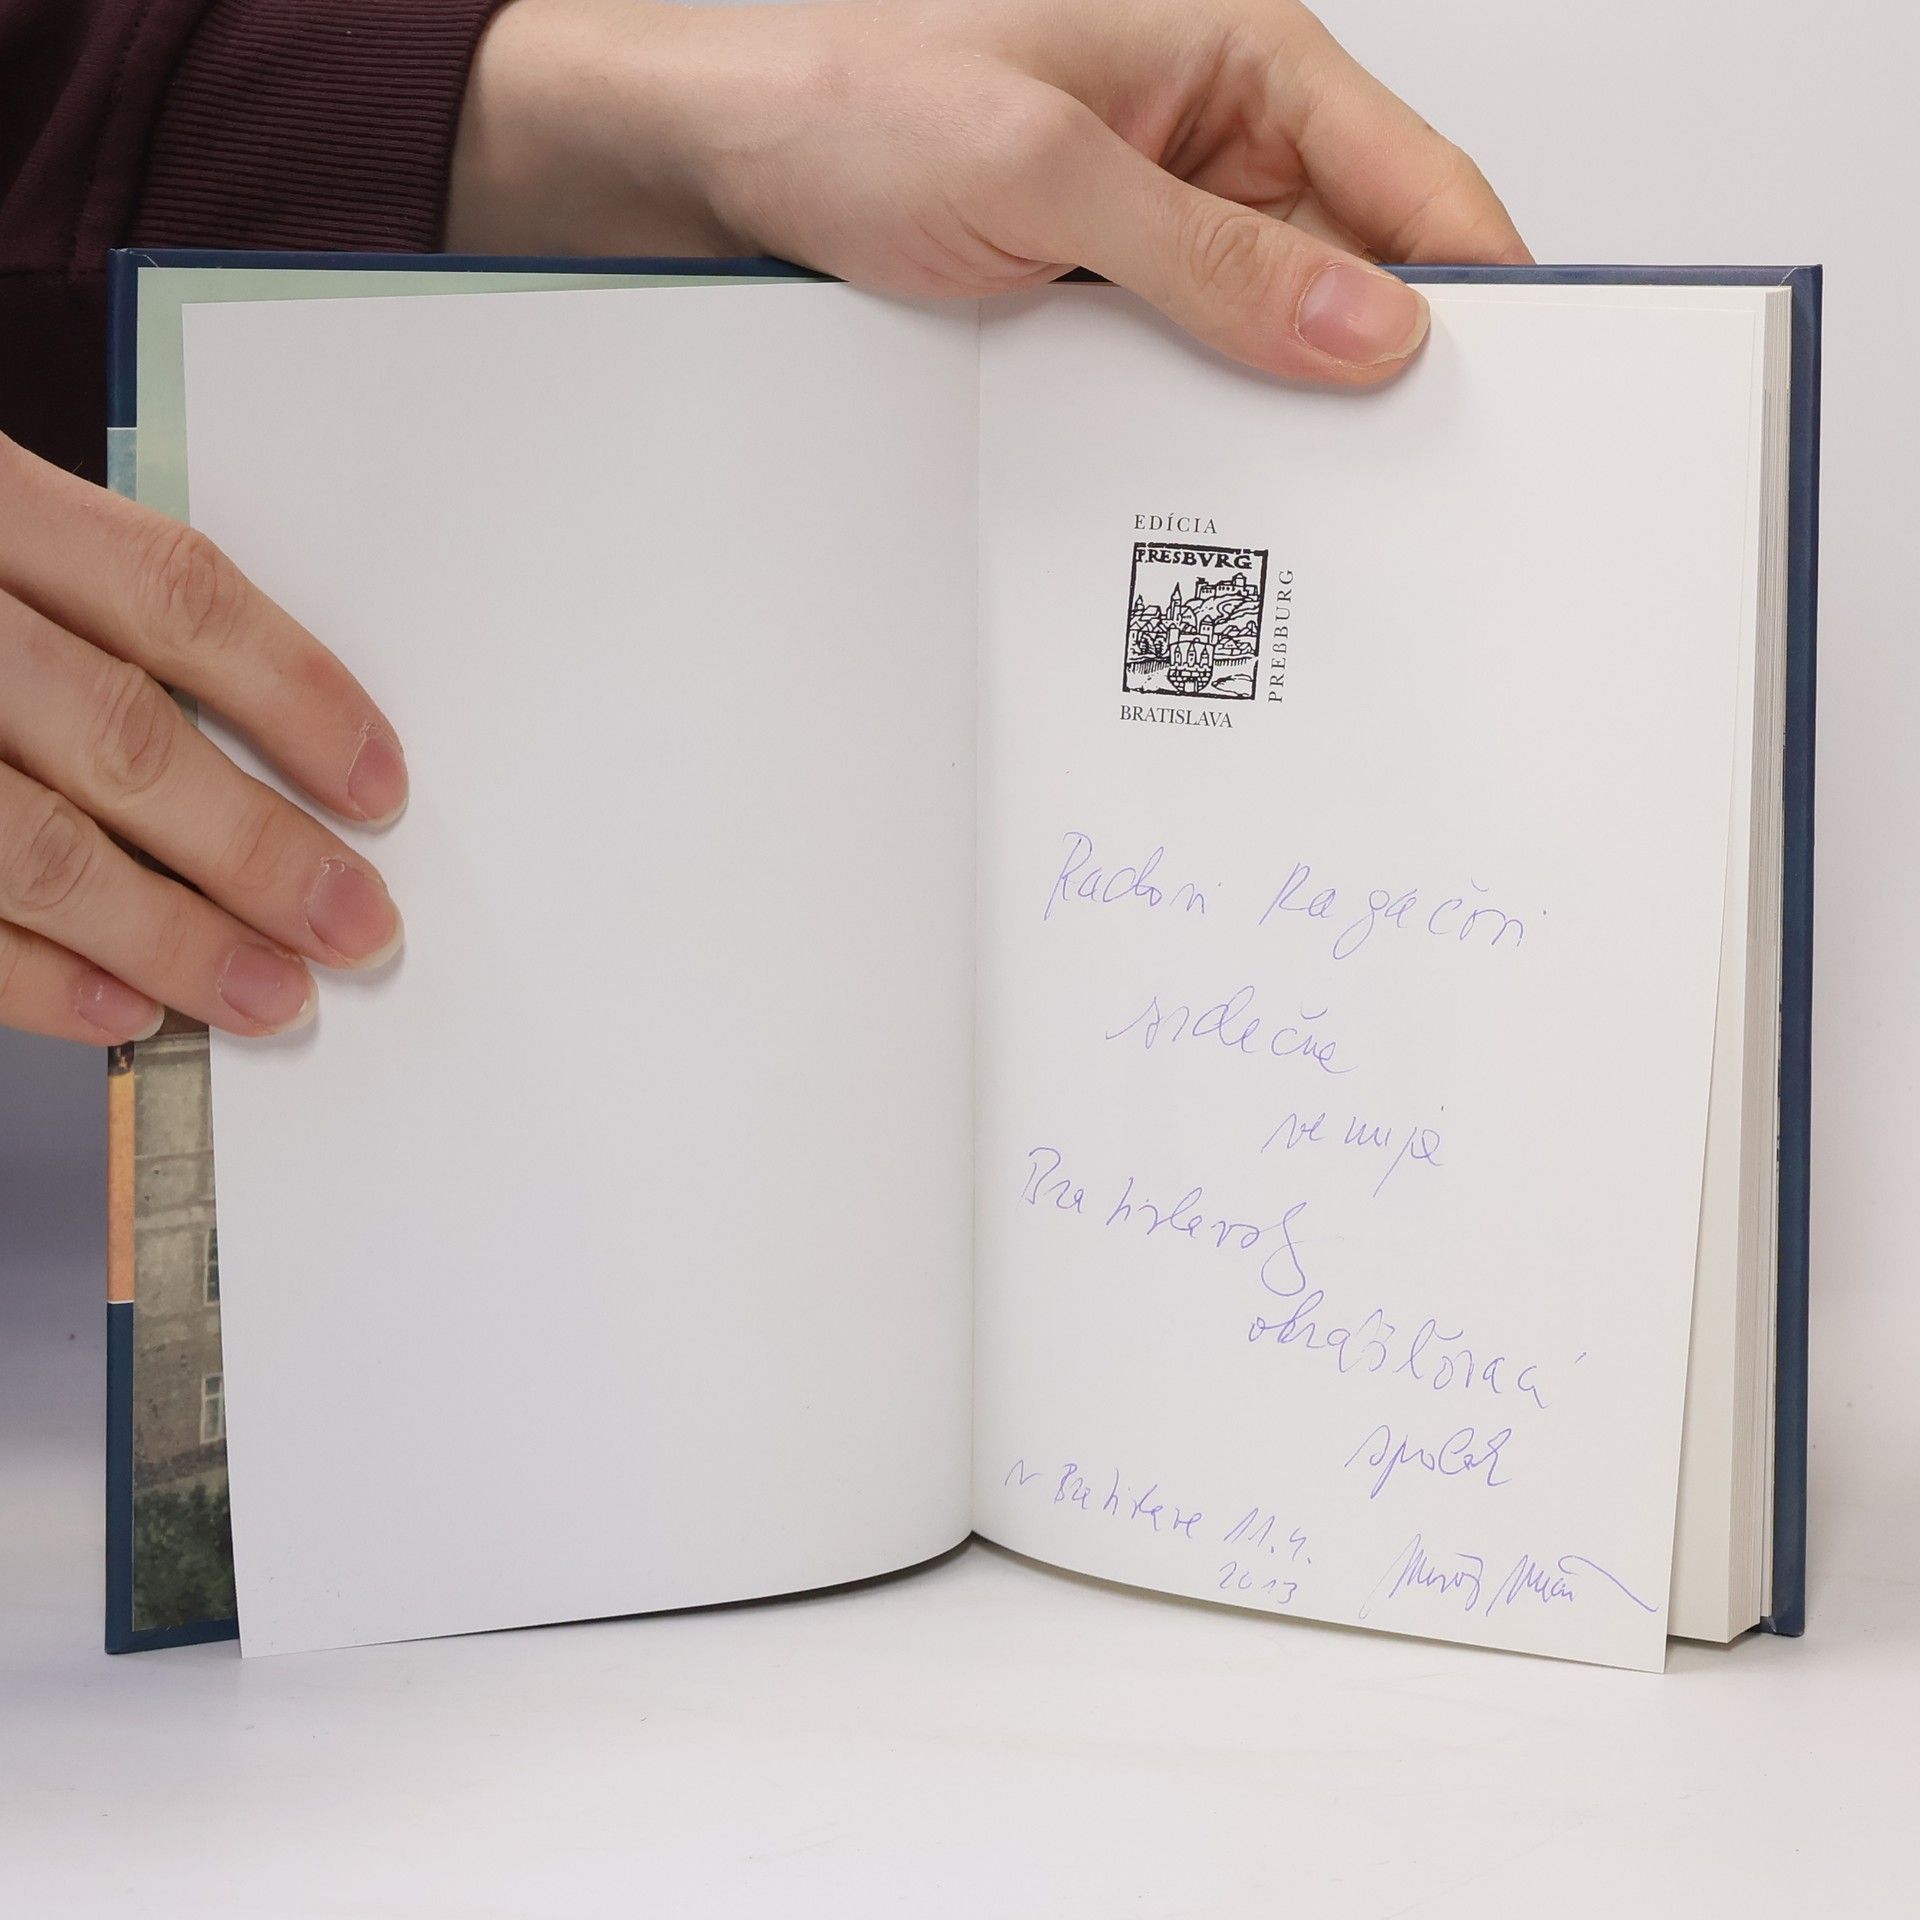 EDÍCIA
PRESBVRG
PREßBURG
BRATISLAVA
Radovi Ragačovi
srdečne
venuje
Bratislavský
okrášľovací
spolok
v Bratislave 11.4.
2013